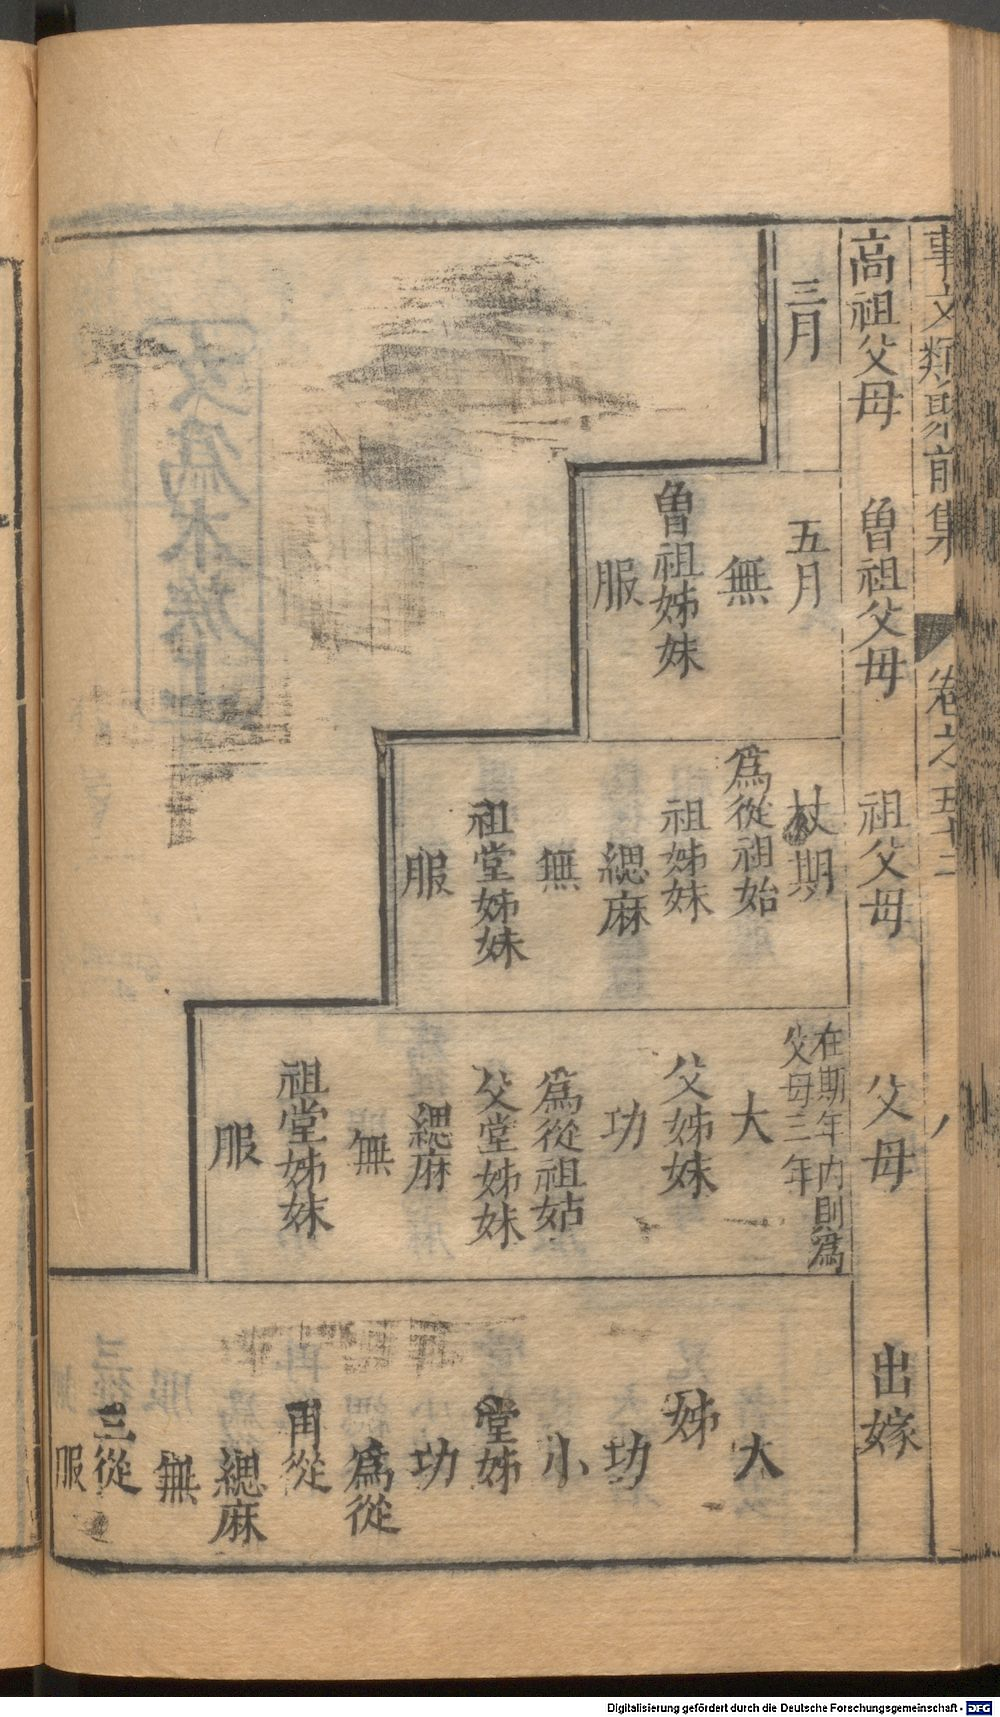 事文類聚前集 卷之五十二 八
高祖父母 曾祖父母 祖父母 父母 出嫁
三月
五月
無
曾祖姊妹
服
杖期
為從祖始
祖姊妹
緦麻
無
祖堂姊妹
服
在期年內則為
父母三年
大
父姊妹
功
為從祖姑
父堂姊妹
緦麻
無
祖堂姊妹
服
大
姊
功
小
堂姊
功
為從
再從
緦麻
無
三從
服
Digitalisierung gefördert durch die Deutsche Forschungsgemeinschaft - DFG